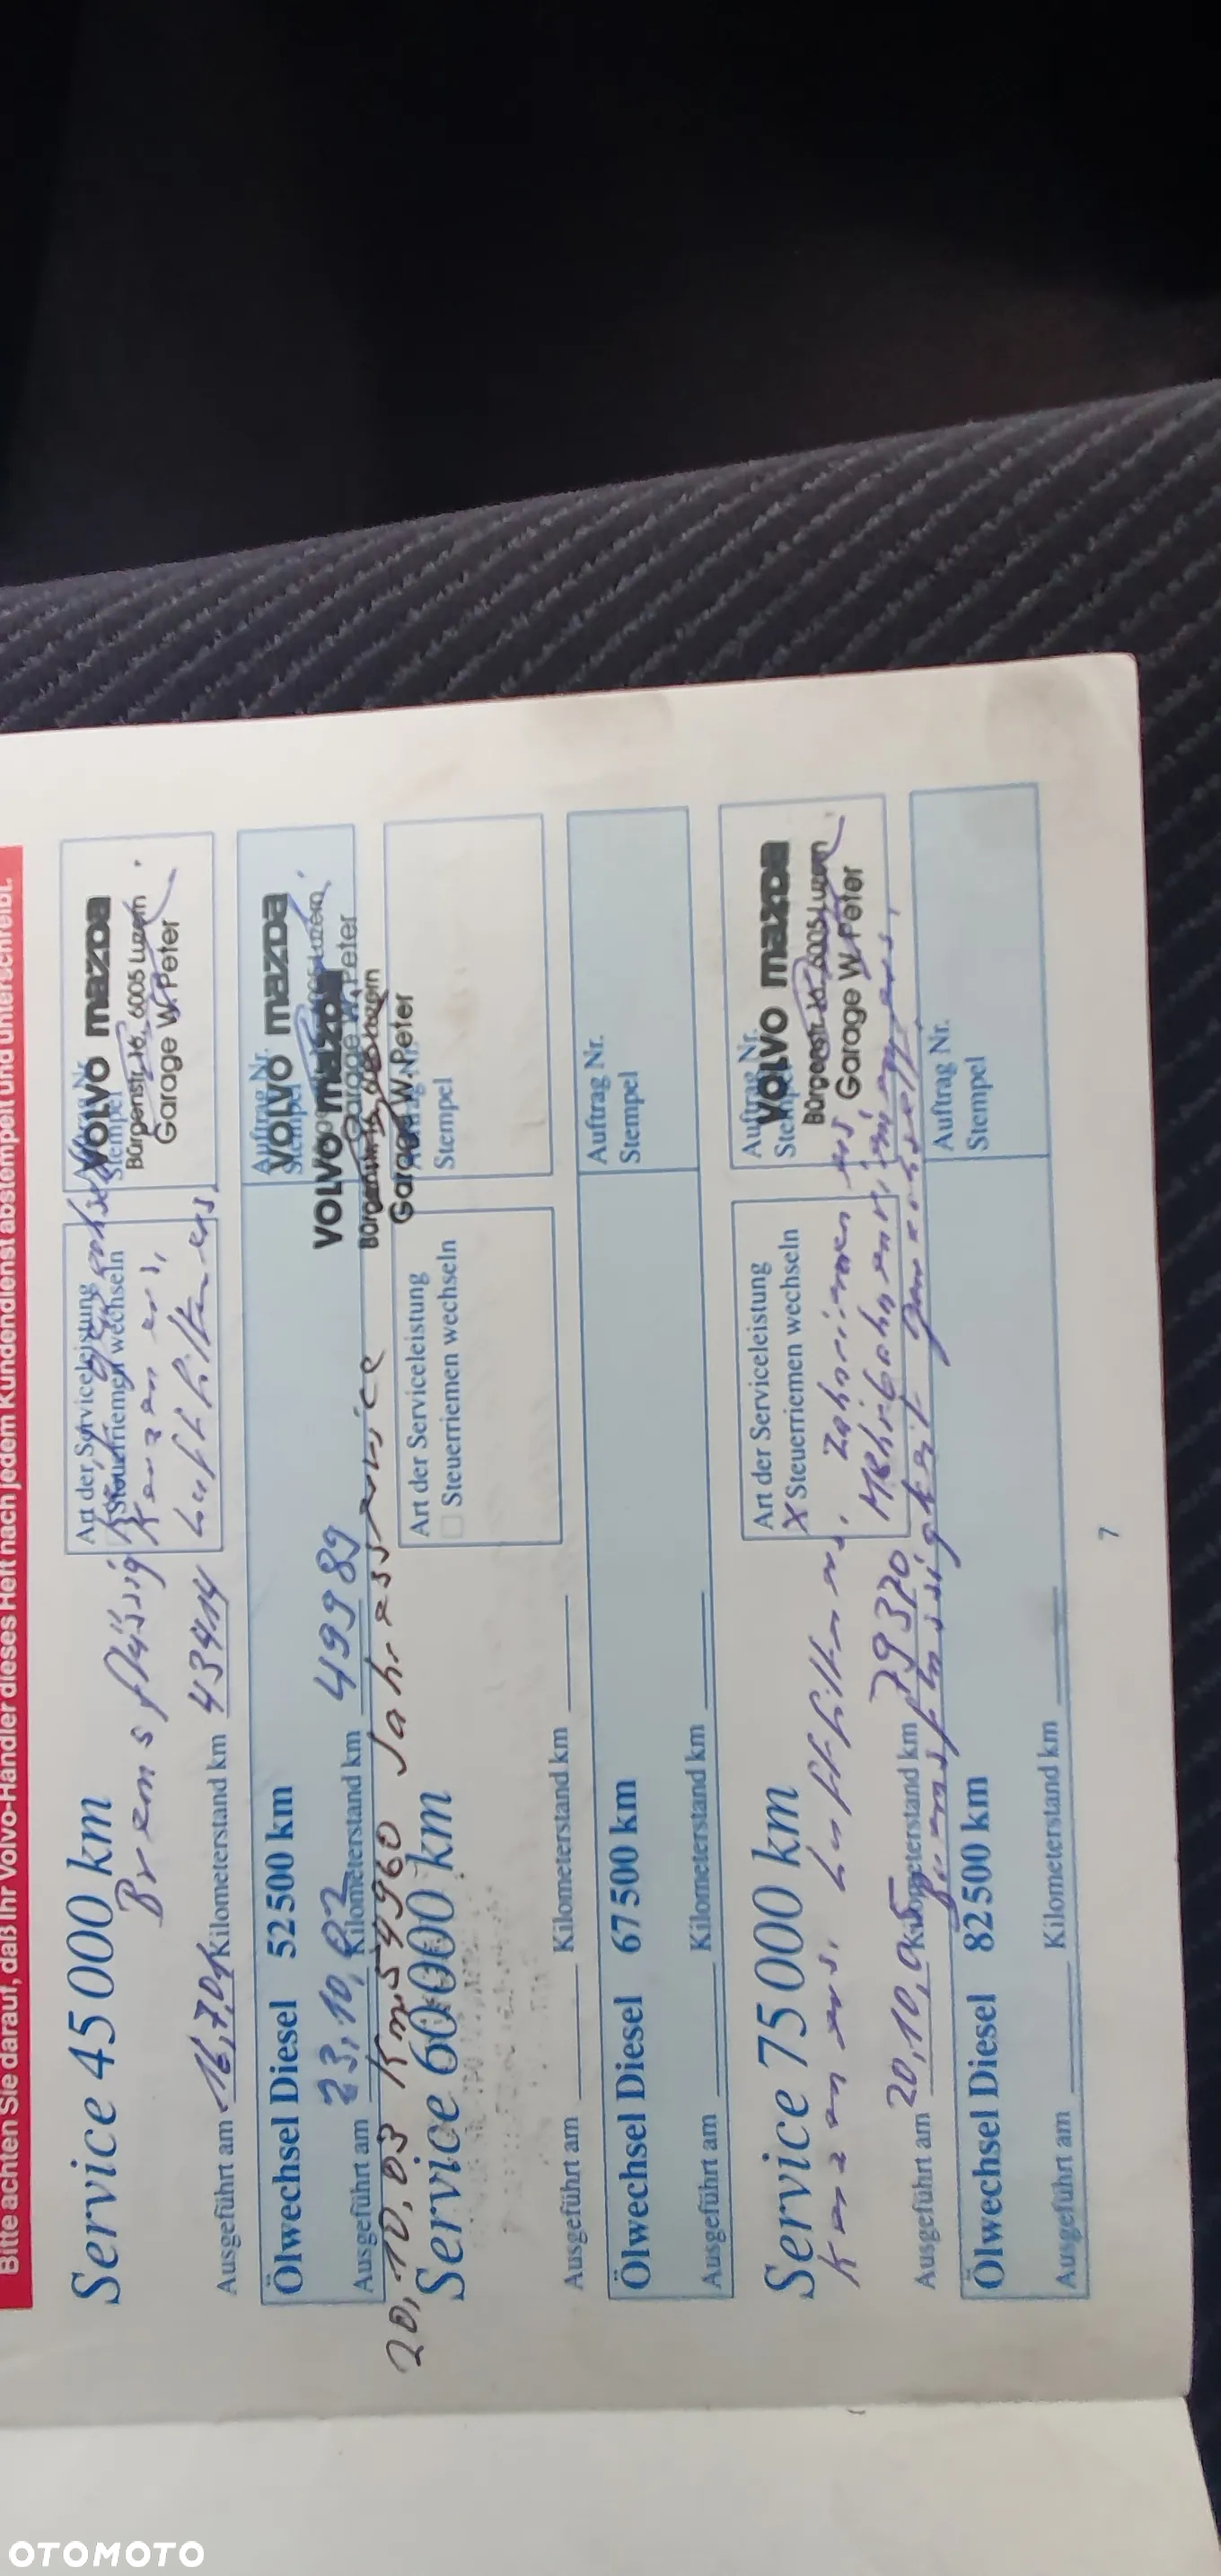 Bitte achten Sie darauf, daß Ihr Volvo-Händler dieses Heft nach jedem Kundendienst abstempelt und unterschreibt.
Service 45 000 km
Bremsflüssigkeit
Art der Serviceleistung
Steuerriemen wechseln
Kerzen ers,
Luftfilter ers,
Stempel
VOLVO mazda
Bürgenstr. 16, 6005 Luzern
Garage W. Peter
Ausgeführt am 16,7,01 Kilometerstand km 43414
Ölwechsel Diesel 52 500 km
Auftrag Nr.
Stempel
VOLVO mazda
6005 Luzern
Garage W. Peter
Ausgeführt am 23,10,02 Kilometerstand km 49989
VOLVO mazda
Bürgenstr. 16, 6005 Luzern
Garage W. Peter
20,10,03 Km 54960 Jahresservice
Service 60 000 km
Art der Serviceleistung
Steuerriemen wechseln
Stempel
Ausgeführt am Kilometerstand km
Ölwechsel Diesel 67 500 km
Auftrag Nr.
Stempel
Ausgeführt am Kilometerstand km
Service 75 000 km
Art der Serviceleistung
X Steuerriemen wechseln
Auftrag Nr.
Stempel
VOLVO mazda
Bürgenstr. 16, 6005 Luzern
Garage W. Peter
Kerzen ers. Luftfilter ers, Zahnriemen ers,
Ausgeführt am 20,10,05 Kilometerstand km 79320
Ölwechsel Diesel 82 500 km
Auftrag Nr.
Stempel
Ausgeführt am Kilometerstand km
7
OTOMOTO